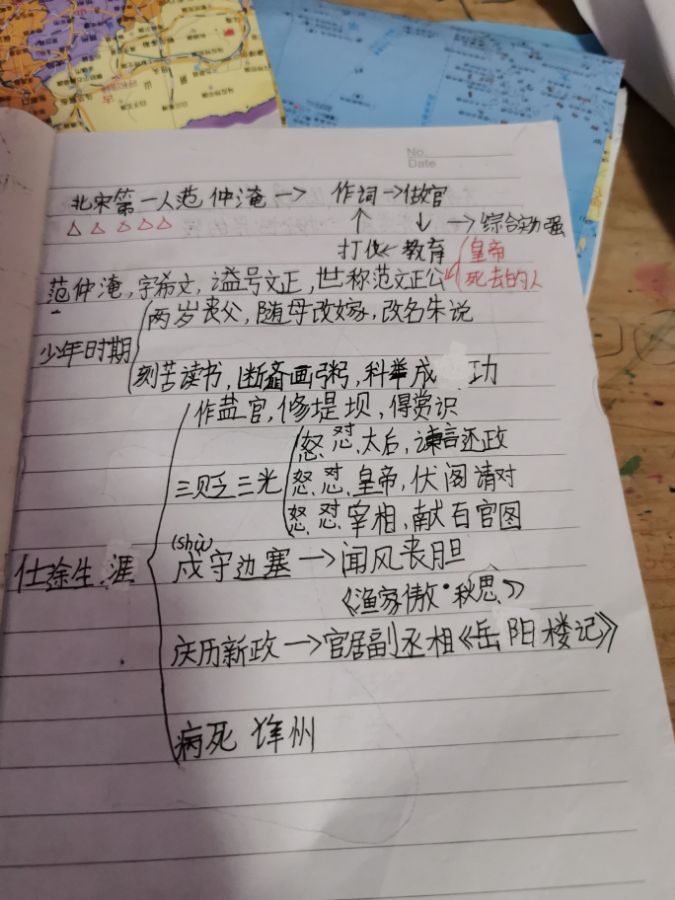 No.
Date
北宋第一人范仲淹→ 作词→做官
↑ ↓ →综合实力强
打仗←教育
皇帝
死去的人
范仲淹,字希文,谥号文正,世称范文正公
少年时期
两岁丧父,随母改嫁,改名朱说
刻苦读书,断齑画粥,科举成功
仕途生涯
作盐官,修堤坝,得赏识
三贬三光
怒怼太后,谏言还政
怒怼皇帝,伏阁请对
怒怼宰相,献百官图
(shù)
戍守边塞→闻风丧胆
《渔家傲·秋思》
庆历新政→官居副丞相《岳阳楼记》
病死 徐州